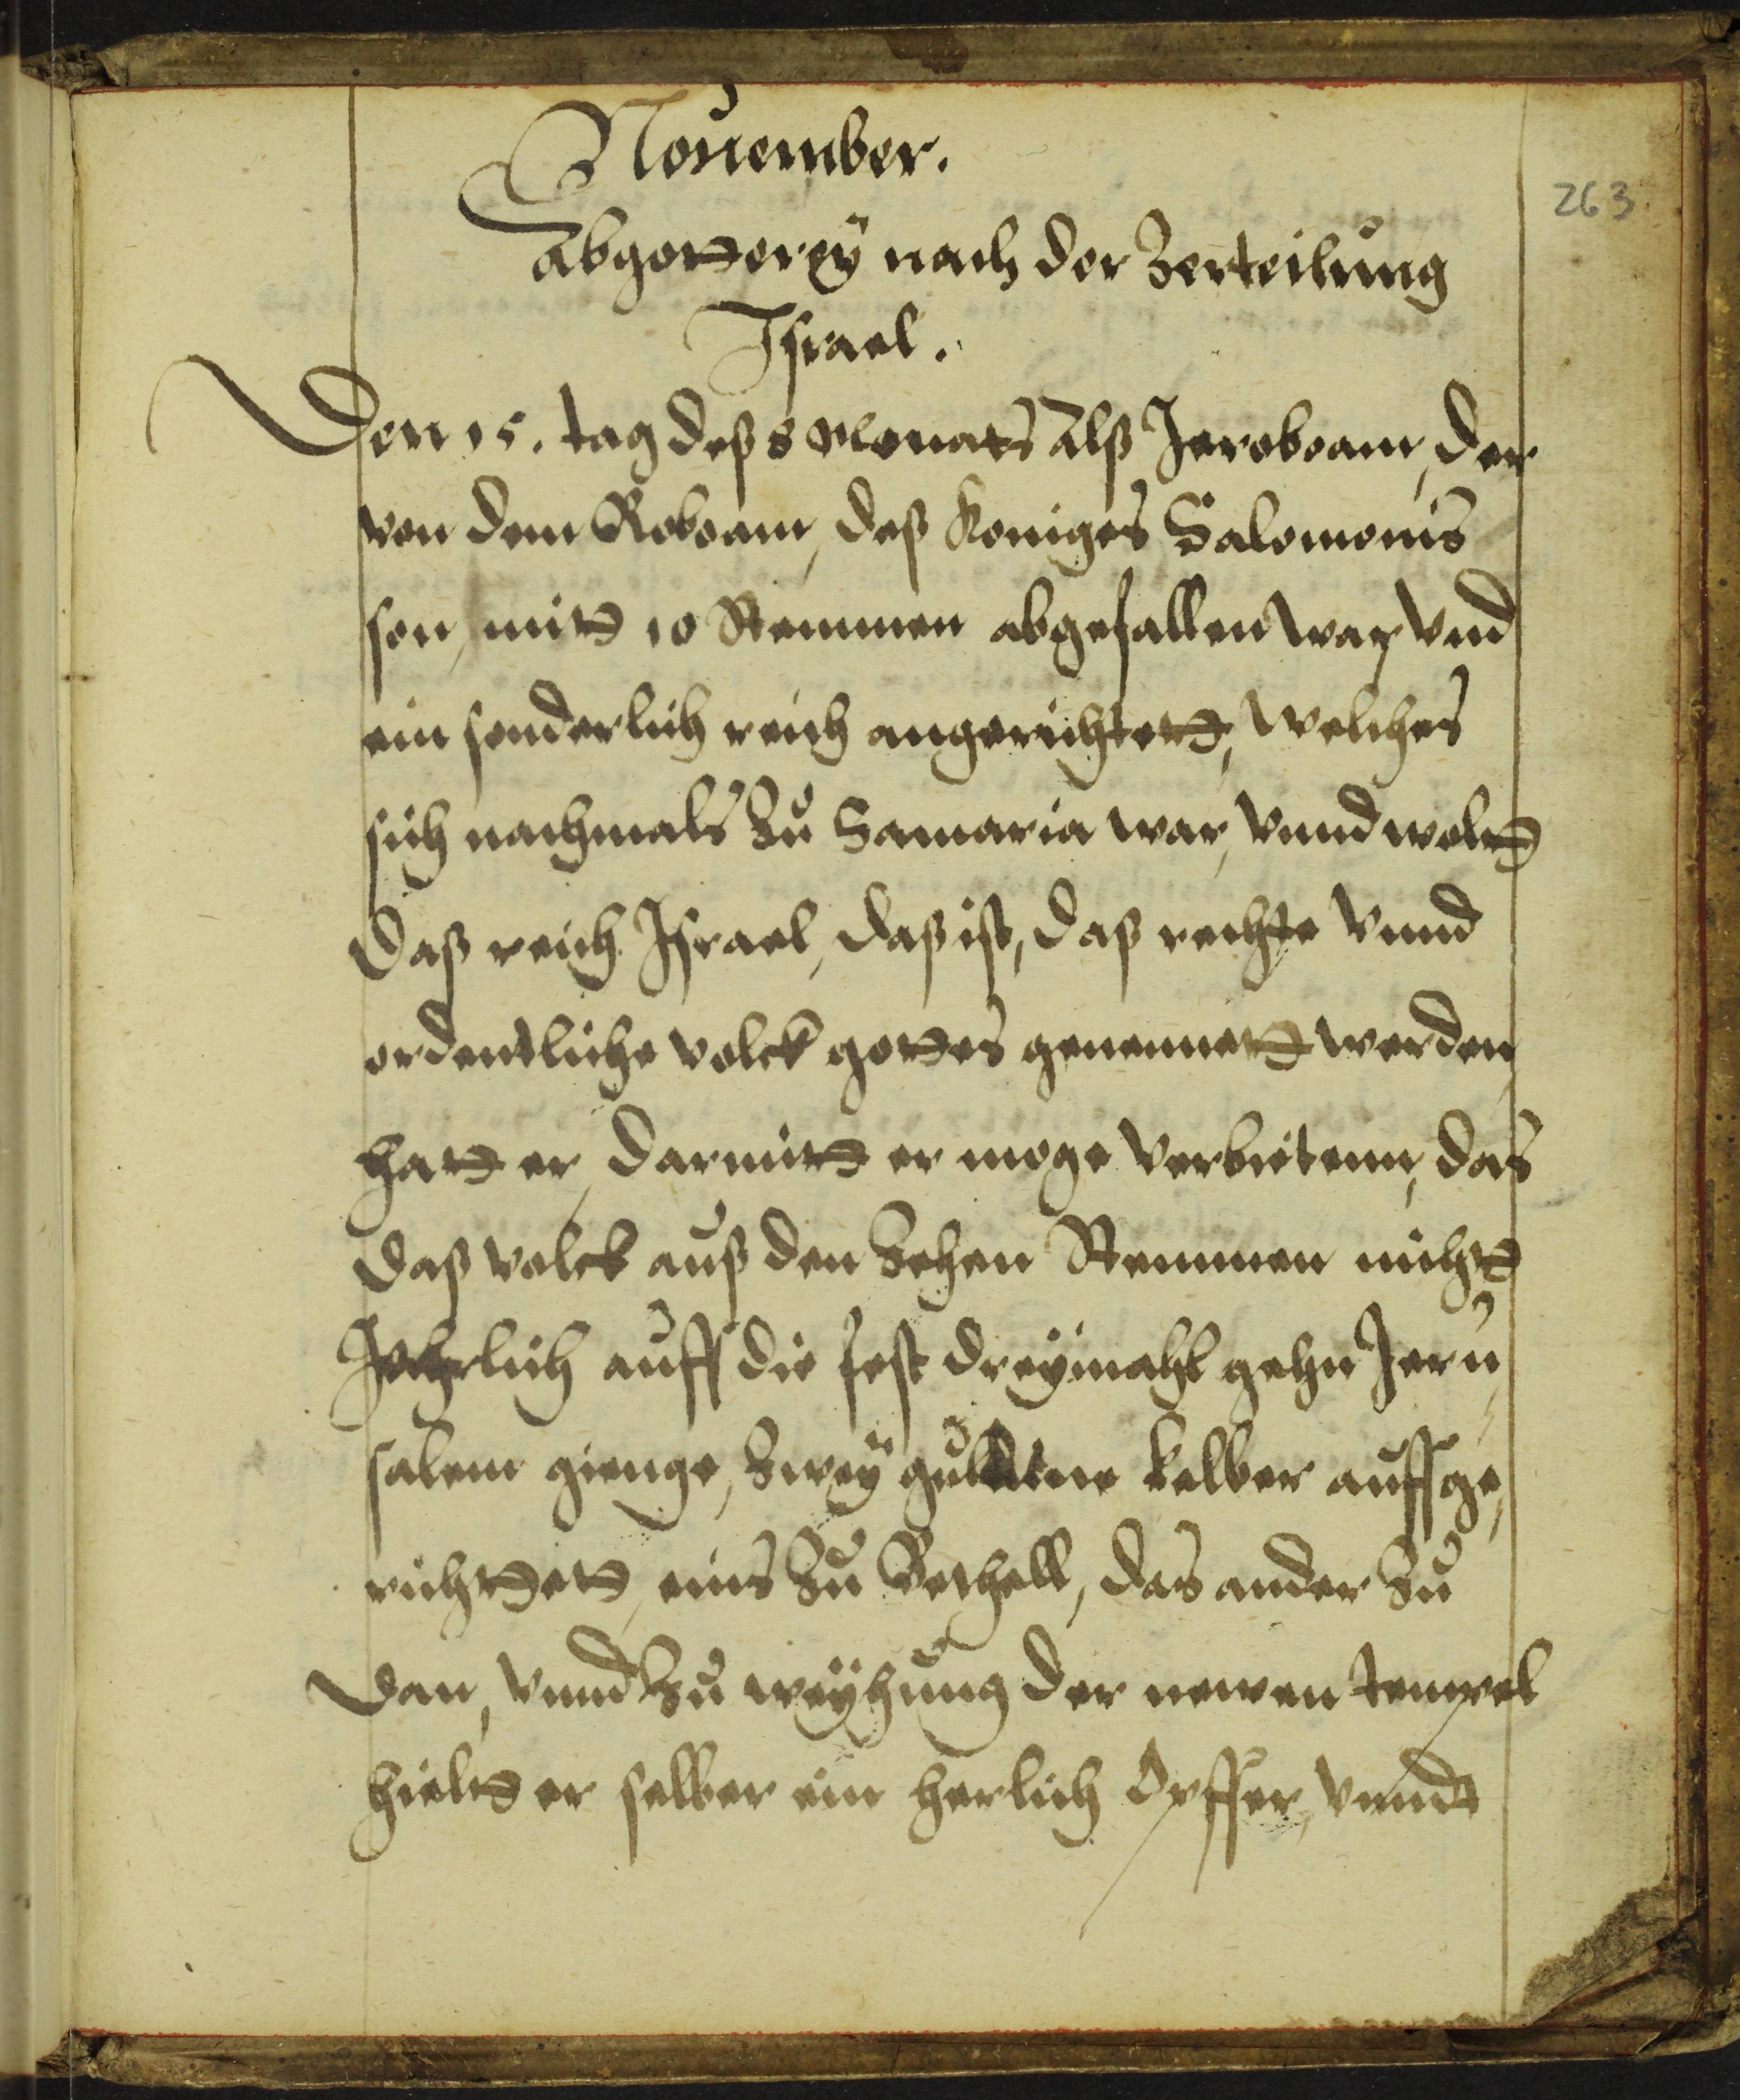 Nouember.
263
Abgotterey nach der Zerteilung
Israel.
Den 15. tag deß 8 Monats Alß Jeroboam, der
von dem Roboam, deß Koniges Salomonis
son, mitt 10 Stemmen abgefallen war vnd
ein sonderlich reich angerichtett, welches
sich nachmals Zu Samaria war, vnnd wolt
Daß reich Israel, daß ist, daß rechte vnnd
ordentliche volck gottes genennett werden
hatt er, darmitt er moge verbietenn, das
Daß volck auß den Zehen Stemmen nicht
Jehrlich auff die fest dreymahl gehn Jeru,
salem gienge, Zwey guldtne kelber auffge,
richttett, eins Zu Bethell, das ander Zu
Dan, vnnd Zu weyhung der newen tempel
hielt er selber ein herlich Opffer, vnndt